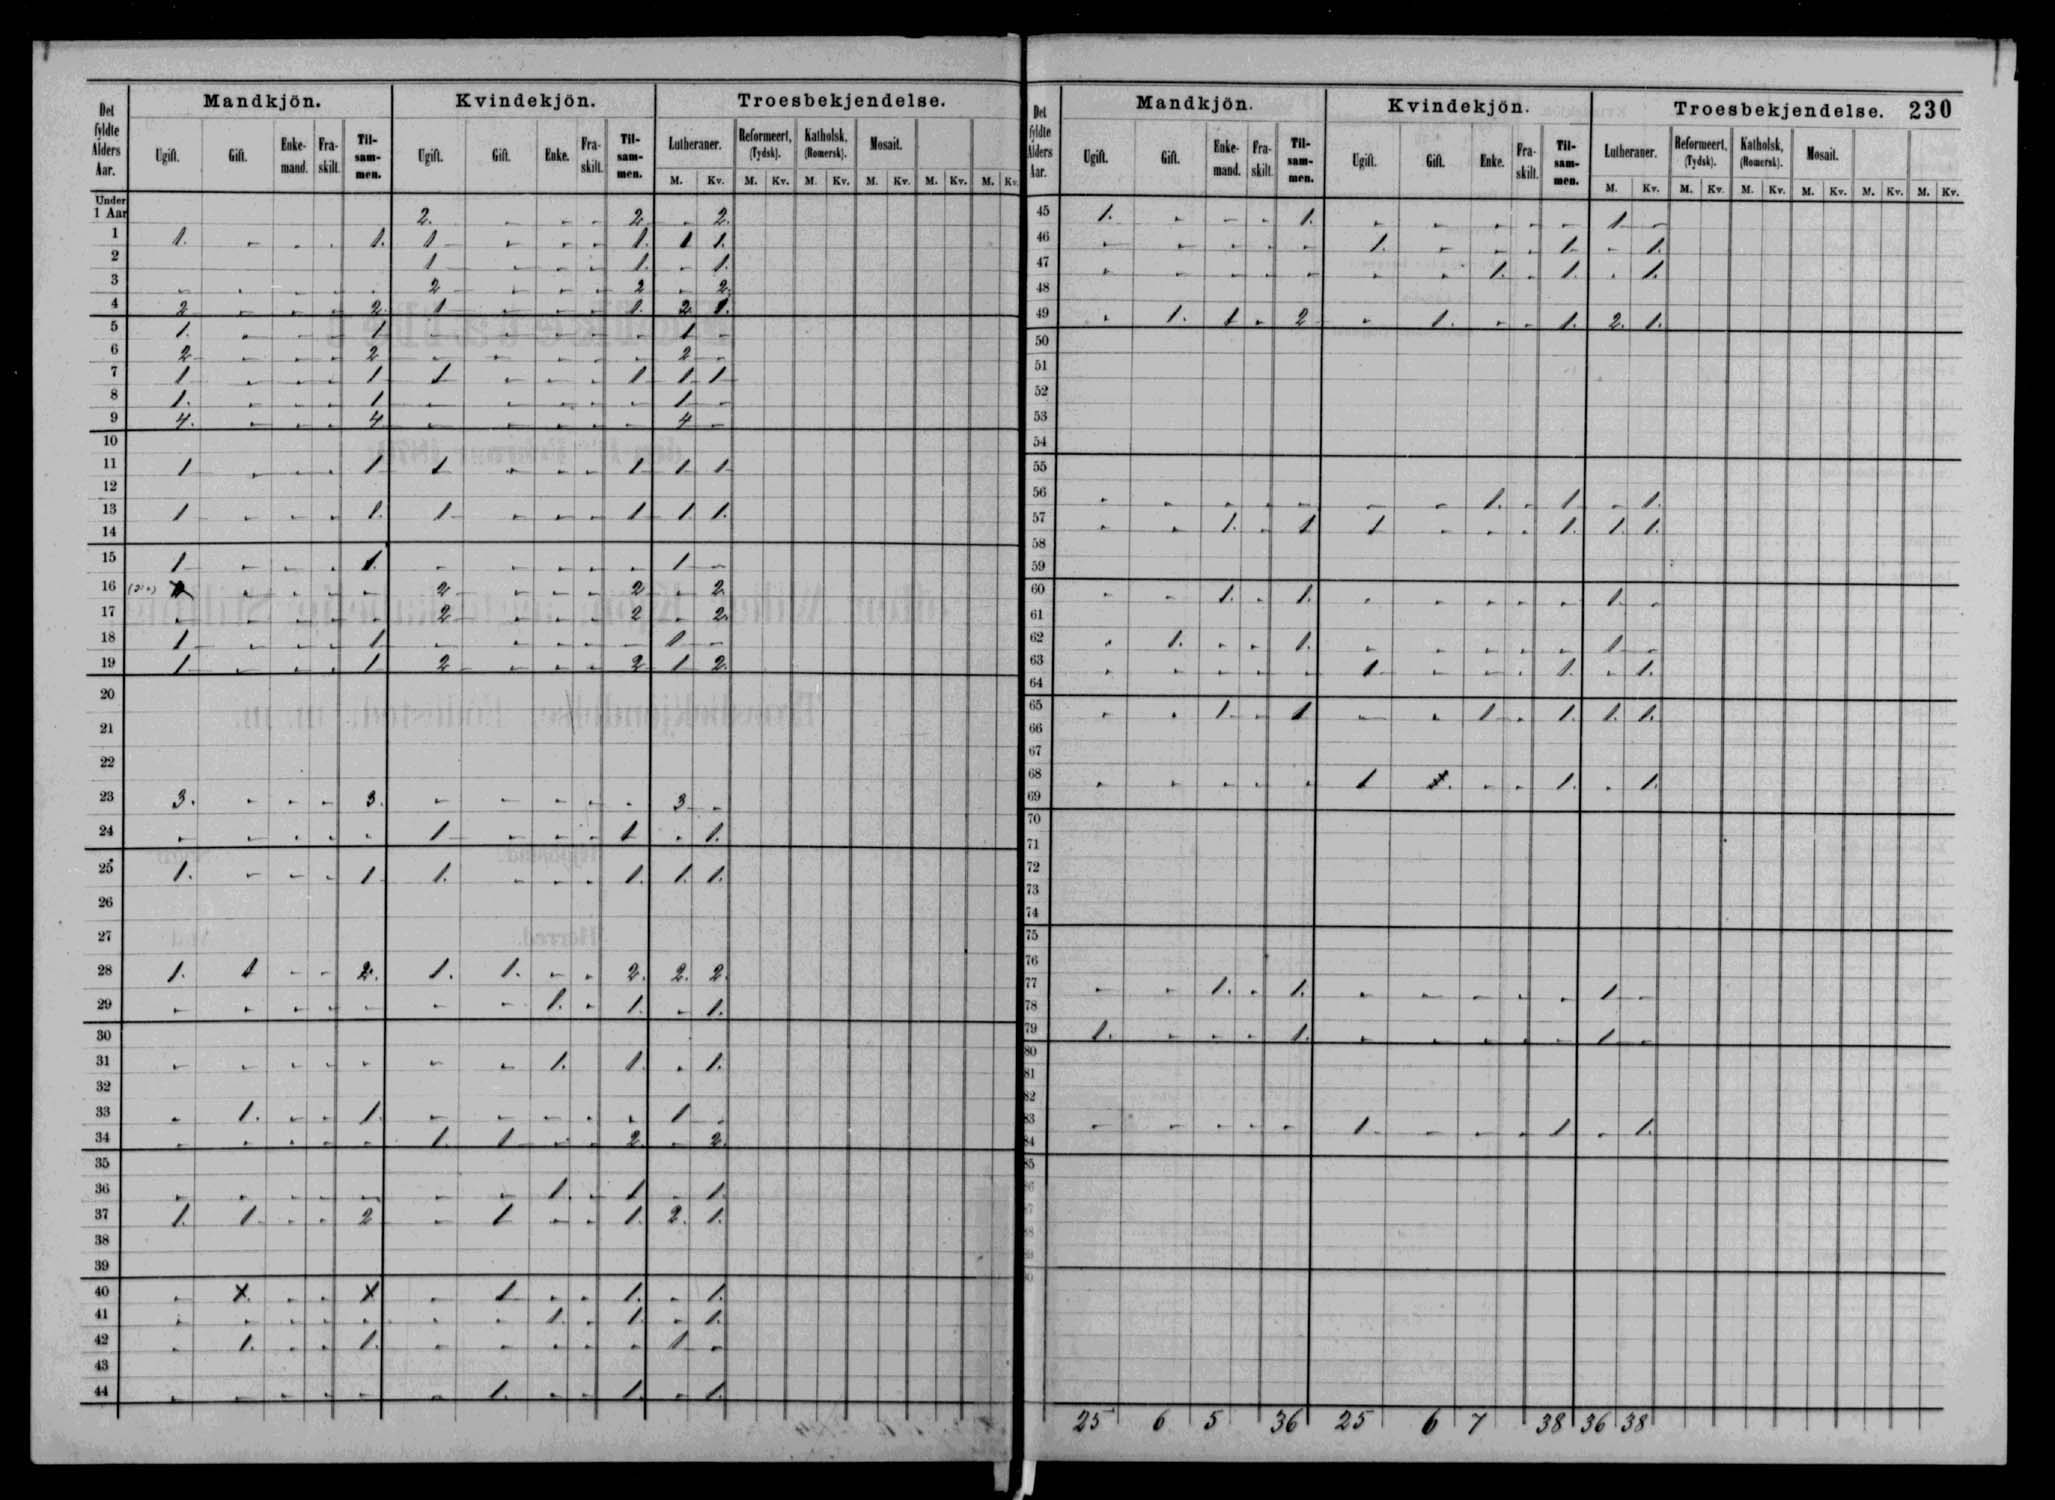 Mandkjön. Kvindekjön. Troesbekjendelse.
Det fyldte Alders Aar. Ugift. Gift. Enke-mand. Fra-skilt. Til-sam-men. Ugift. Gift. Enke. Fra-skilt. Til-sam-men. Lutheraner. Reformeert, (Tydsk). Katholsk, (Romersk). Mosait.
M. Kv. M. Kv. M. Kv. M. Kv. M. Kv. M. Kv.
Under 1 Aar 2. - - - 2 - 2.
1 1. - - - 1. 1 - - - 1. 1 1.
2 1 - - - 1. - 1.
3 - - - - - 2 - - - 2 - 2.
4 2 - - - 2 1 - - - 1. 2 1.
5 1. - - - 1 - - - - - 1 -
6 2 - - - 2 - - - - - 2 -
7 1 - - - 1 1 - - - 1 1 1
8 1. - - - 1 - - - - - 1 -
9 4. - - - 4 - - - - - 4 -
10
11 1 - - - 1 1 - - - 1 1 1
12
13 1 - - - 1. 1 - - - 1 1. 1.
14
15 1 - - - 1. - - - - - 1 -
16 - - - - 2 - - - 2 - 2
17 - - - - - 2 - - - 2 - 2.
18 1 - - - 1 - - - - - 1 -
19 1 - - - 1 2 - - - 2 1 2.
20
21
22
23 3. - - - 3. - - - - - 3 -
24 - - - - - 1 - - - 1 - 1.
25 1. - - - 1. 1. - - - 1. 1. 1.
26
27
28 1. 1 - - 2. 1. 1. - - 2. 2. 2.
29 - - - - - - - 1. - 1. - 1.
30
31 - - - - - - - 1. 1. - 1.
32
33 - 1. - - 1. - - - - - 1 -
34 - - - - - 1. 1 - - 2. - 2.
35
36 - - - - - - - 1. - 1 - 1.
37 1. 1 - - 2 - 1 - - 1. 2. 1.
38
39
40 - X - - X - 1 - - 1. - 1.
41 - - - - - - - 1. - 1. - 1.
42 - 1. - - 1. - - - - - 1 -
43
44 - - - - - - 1. - - 1. - 1.
Mandkjön. Kvindekjön. Troesbekjendelse. 230
Det fyldte Alders Aar. Ugift. Gift. Enke-mand. Fra-skilt. Til-sam-men. Ugift. Gift. Enke. Fra-skilt. Til-sam-men. Lutheraner. Reformeert, (Tydsk). Katholsk, (Romersk). Mosait.
M. Kv. M. Kv. M. Kv. M. Kv. M. Kv. M. Kv.
45 1. - - - 1. - - - - - 1 -
46 - - - - - 1. - - - 1. - 1.
47 - - - - - - - 1. - 1. - 1.
48
49 - 1. 1 - 2 - 1. - - 1. 2. 1.
50
51
52
53
54
55
56 - - - - - - - 1. - 1. - 1.
57 - - 1. - 1 1 - - - 1. 1. 1.
58
59
60 - - 1. - 1. - - - - - 1. -
61
62 - 1. - - 1. - - - - - 1 -
63 - - - - - 1 - - - 1. - 1.
64
65 - - 1. - 1 - - 1 - 1. 1. 1.
66
67
68 - - - - - 1 - - 1. - 1.
69
70
71
72
73
74
75
76
77 - - 1. - 1. - - - - - 1 -
78
79 1. - - - 1. - - - - - 1 -
80
81
82
83 - - - - - 1 - - - 1 - 1.
84
85
25 6 5 36 25 6 7 38 36 38